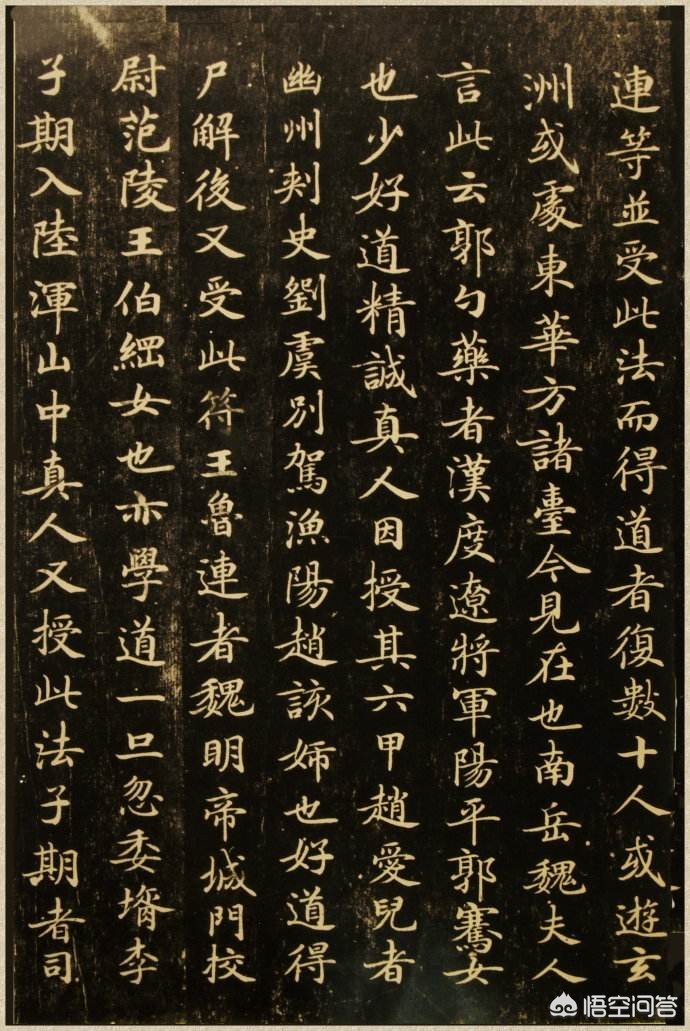 連等並受此法而得道者復數十人或遊玄
洲或處東華方諸臺今見在也南岳魏夫人
言此云郭勺藥者漢度遼將軍陽平郭騫女
也少好道精誠真人因授其六甲趙愛兒者
幽州刾史劉虞別駕漁陽趙該姊也好道得
尸解後又受此符王魯連者魏明帝城門校
尉范陵王伯綑女也亦學道一旦忽委壻李
子期入陸渾山中真人又授此法子期者司
悟空问答